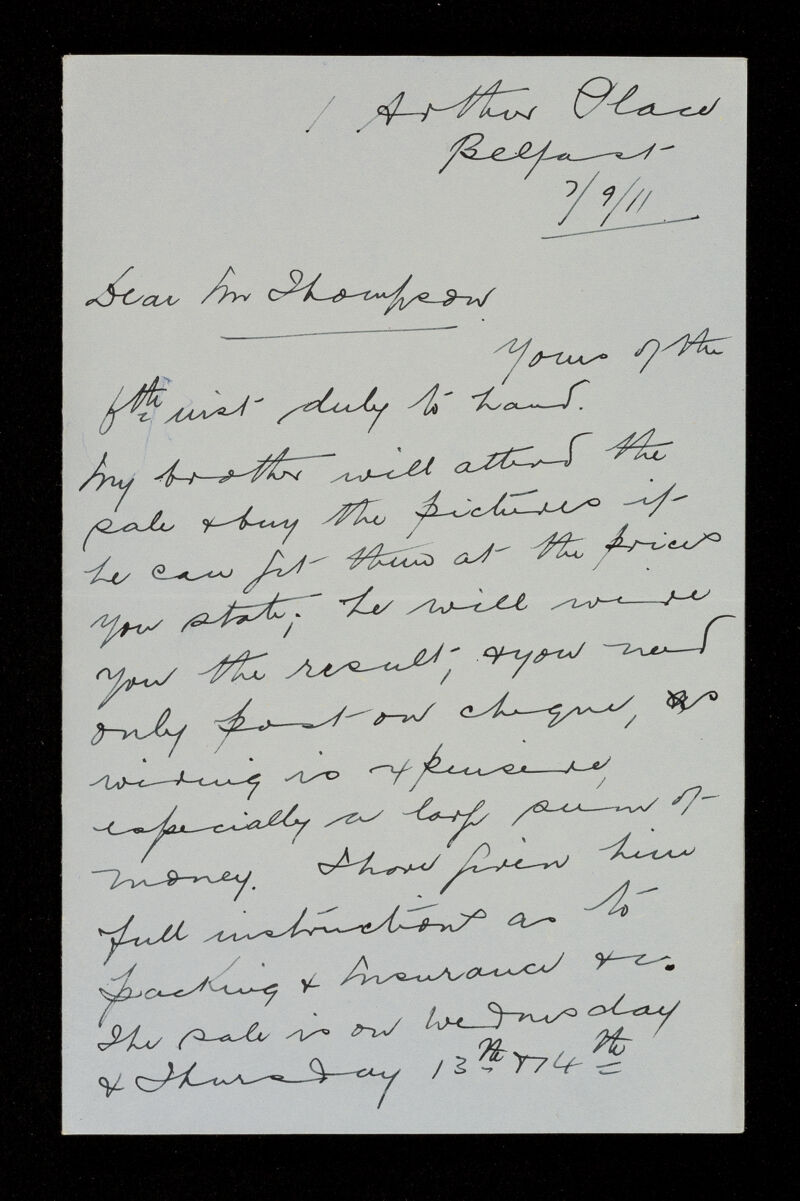 1 Arthur Place
Belfast
7/9/11
Dear Mr Thompson
Yours of the
6th inst duly to hand.
My brother will attend the
sale & buy the pictures if
he can get them at the prices
you state; he will wire
you the result, & you need
only post on cheque, as
wiring is expensive,
especially a large sum of
money. I have given him
full instructions as to
packing & Insurance &c.
The sale is on Wednesday
& Thursday 13th & 14th